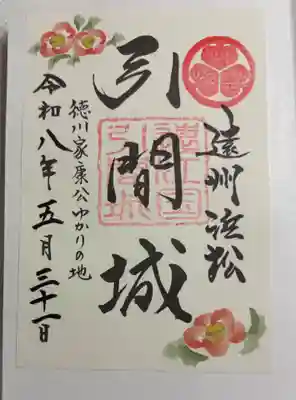 遠州浜松
引間城
徳川家康公ゆかりの地
令和八年五月三十一日